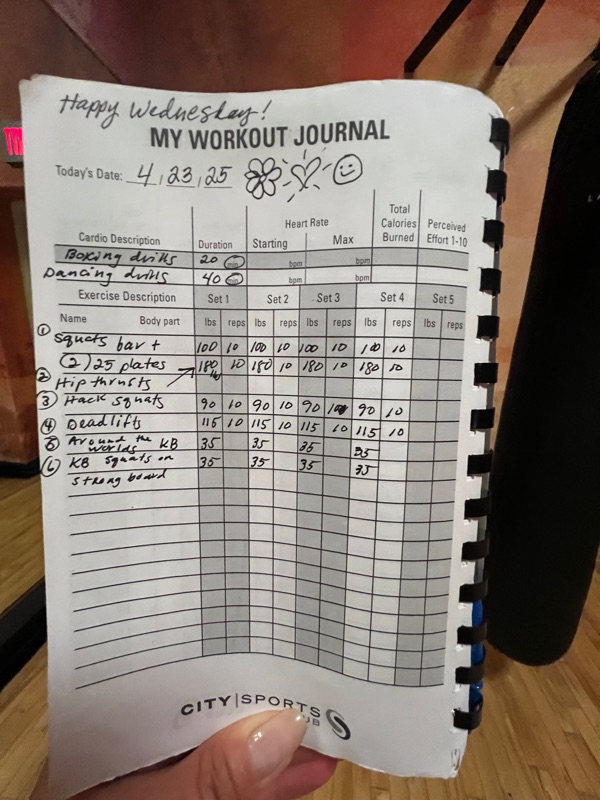 Happy Wednesday!
MY WORKOUT JOURNAL
Today's Date: 4, 23, 25
Heart Rate
Total Calories Burned
Perceived Effort 1-10
Cardio Description Duration Starting Max
Boxing drills 20 min bpm bpm
Dancing drills 40 min bpm bpm
Exercise Description Set 1 Set 2 Set 3 Set 4 Set 5
Name Body part lbs reps lbs reps lbs reps lbs reps lbs reps
① Squats bar + 100 10 100 10 100 10 100 10
(2) 25 plates 180 10 180 10 180 10 180 10
② Hip thrusts
③ Hack squats 90 10 90 10 90 10 90 10
④ Deadlifts 115 10 115 10 115 10 115 10
⑤ Around the worlds KB 35 35 35 35
⑥ KB squats on 35 35 35 35
strong board
CITY|SPORTS
UB